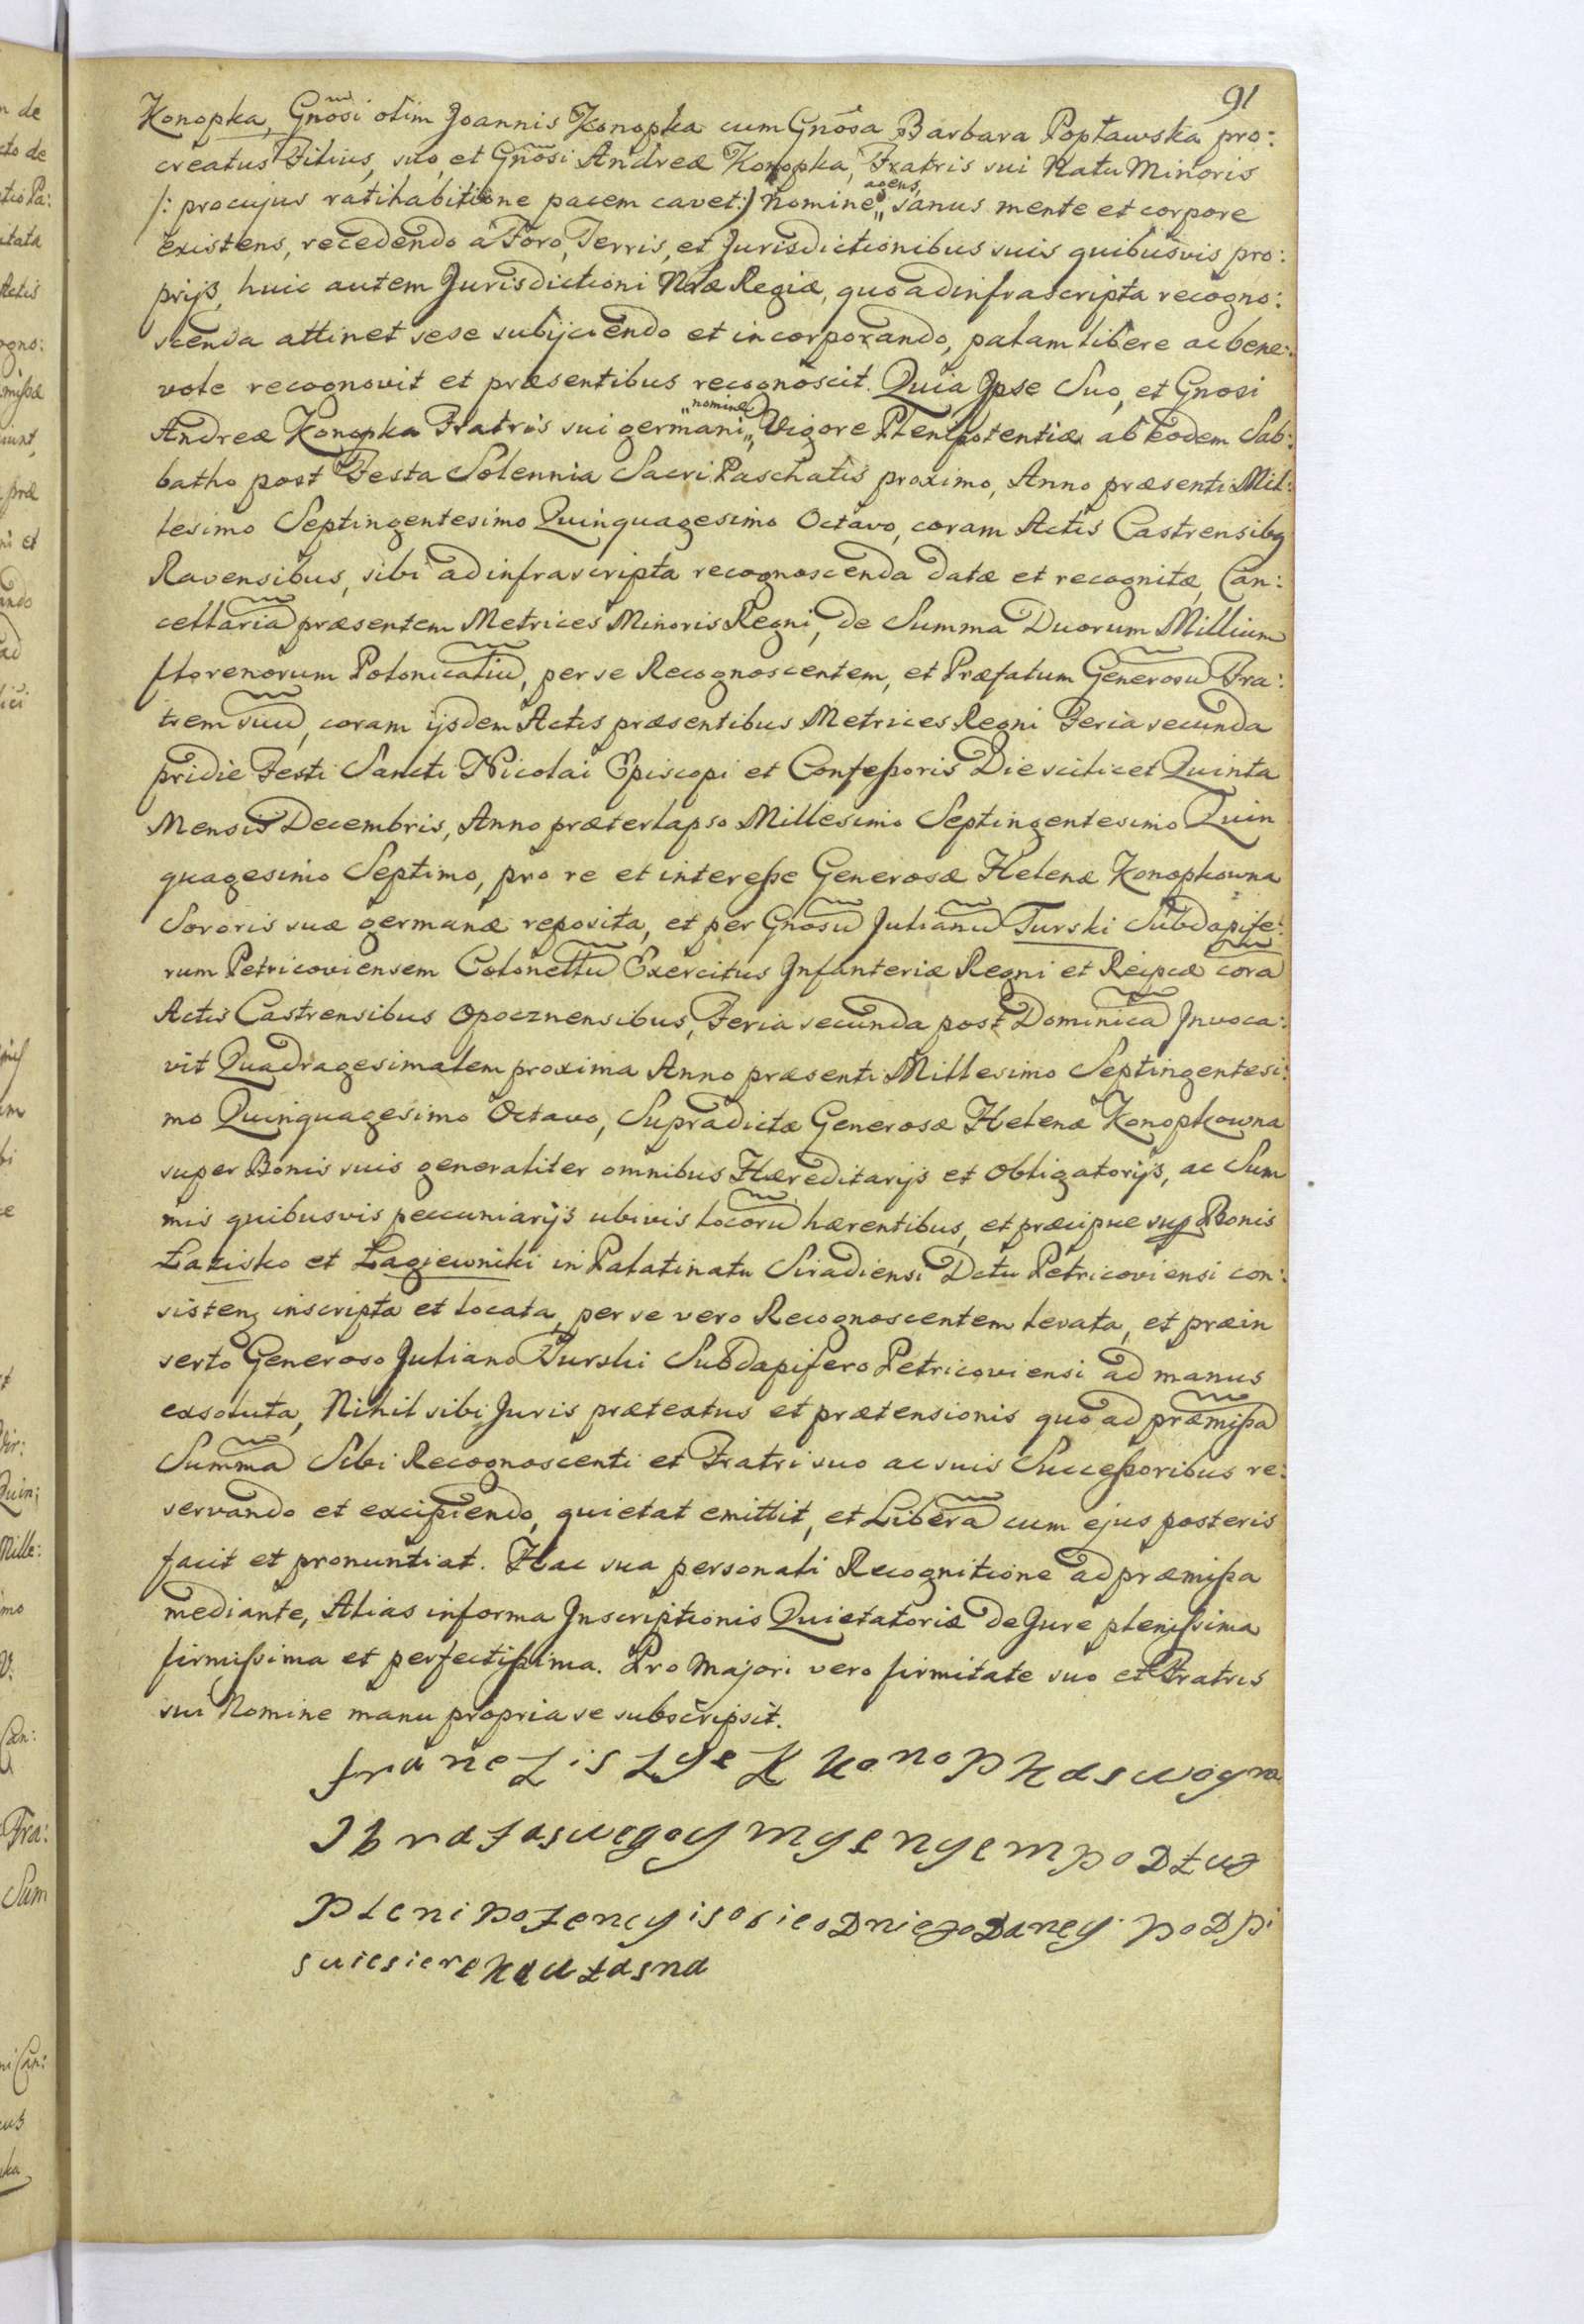 91
Konopka, Gnosi olim Joannis Konopka cum Gnosa Barbara Popławska pro:
creatus Filius, suo, et Gnosi Andreæ Konopka, Fratris sui Natu Minoris
/: pro cujus ratihabitione pacem cavet :/ Nomine agens, „ sanus mente et corpore
existens, recedendo a Foro, Terris, et Jurisdictionibus suis quibusvis pro:
prijs, huic autem Jurisdictioni Nræ Regiæ, quo ad infrascripta recogno:
scenda attinet sese subijciendo et incorporando, palam libere ac bene:
vole recognovit et præsentibus recognoscit. Quia Ipse Suo, et Gnosi
Andreæ Konopka Fratris sui germani „nomine„ Vigore Plenipotentiæ ab eodem Sab:
batho post Festa Solennia Sacri Paschatis proximo, Anno præsenti Mil:
lesimo Septingentesimo Quinquagesimo Octavo, coram Actis Castrensibq
Ravensibus, sibi ad infrascripta recognoscenda datæ et recognitæ, Can:
cellaria præsentem Metrices Minoris Regni, de Summa Duorum Millium
florenorum Polonicaliu, per se Recognoscentem, et Præfatum Generosu Fra:
trem suu, coram ijsdem Actis præsentibus Metrices Regni Feria secunda
pridie Festi Sancti Nicolai Episcopi et Confeßoris Die scilicet Quinta
Mensis Decembris, Anno præterlapso Millesimo Septingentesimo Quin
quagesimo Septimo, pro re et intereße Generosæ Helenæ Konopkowna
Sororis suæ germanæ reposita, et per Gnosu Julianu Turski Subdapife:
rum Petricoviensem Colonellu Exercitus Infanteriæ Regni et Reipcæ cora
Actis Castrensibus Opocznensibus, Feria secunda post Dominica Invoca:
vit Quadragesimalem proxima Anno præsenti Millesimo Septingentesi:
mo Quinquagesimo Octavo, Supradictæ Generosæ Helenæ Konopkowna
super Bonis suis generaliter omnibus Hæreditarijs et Obligatorijs, ac Sum
mis quibusvis peccuniarijs ubivis locoru hærentibus, et præcipue sup Bonis
Łazisko et Łagiewniki in Palatinatu Siradiensi Dctu Petricoviensi con:
sisten, inscripta et locata, per se vero Recognoscentem levata, et præin
serto Generoso Juliano Turski Subdapifero Petricoviensi ad manus
exsoluta, Nihil sibi Juris prætextus et prætensionis quo ad præmißa
Summa Sibi Recognoscenti et Fratri suo ac suis Succeßoribus re:
servando et excipiendo, quietat emittit, et Libera cum ejus posteris
facit et pronuntiat. Hac sua personali Recognitione ad præmißa
mediante, Alias in forma Inscriptionis Quietatoriæ de Jure plenißima
firmißima et perfectißima. Pro Majori vero firmitate suo et Fratris
sui Nomine manu propria se subscripsit.
franciszek konopka swoym
y brata swego ymyenyem podług
plenipotencyi sobie od niego daney podpi
suie sie ręką własną